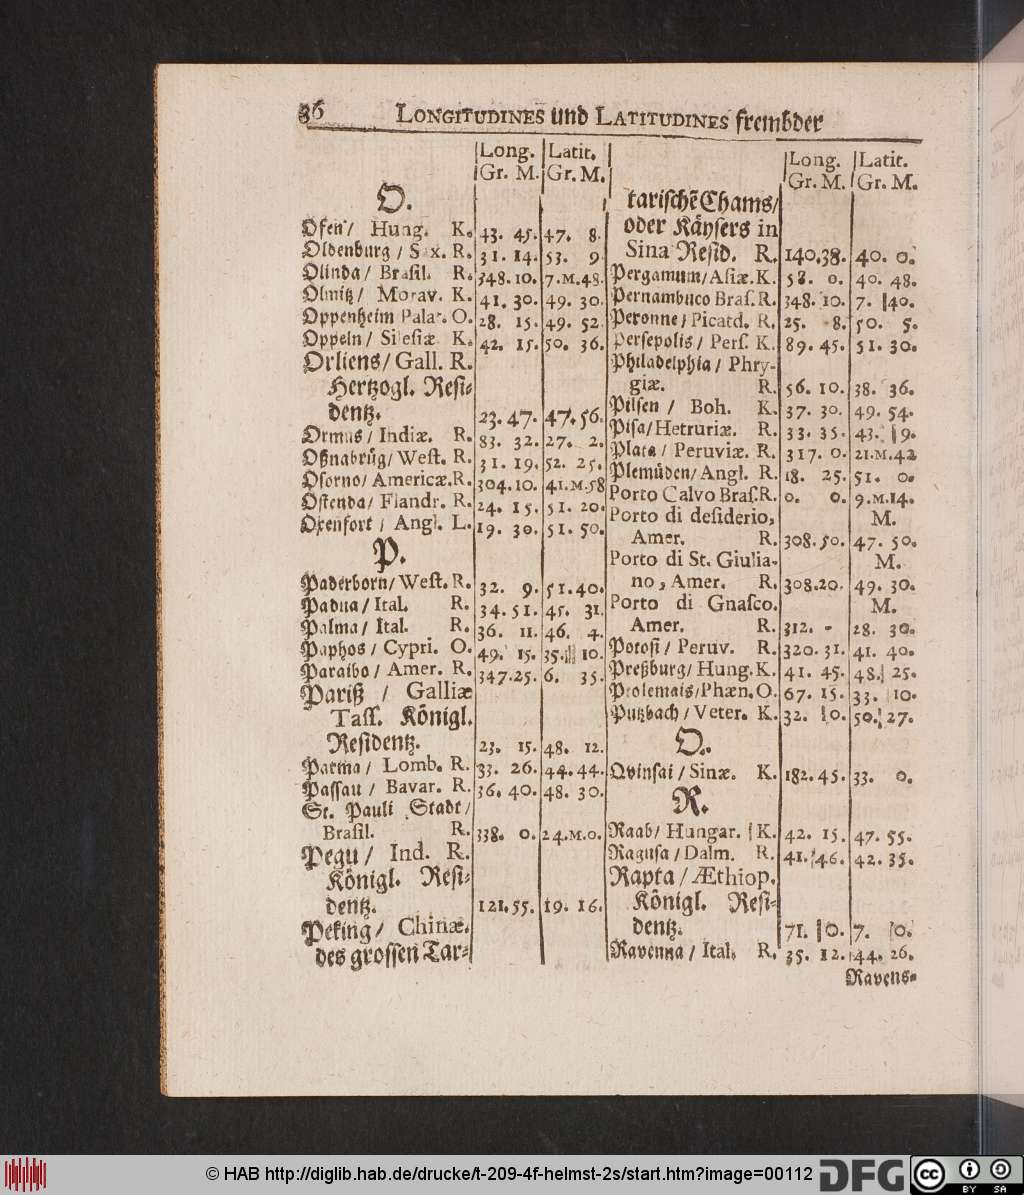 86 LONGITUDINES und LATITUDINES frembder
Long. Latit.
Gr. M. Gr. M.
O.
Ofen / Hung. K. 43. 45. 47. 8.
Oldenburg / Sax. R. 31. 14. 53. 9
Olinda / Brasil. R. 348. 10. 7. M. 48.
Olmitz / Morav. K. 41. 30. 49. 30.
Oppenheim Palat. O. 28. 15. 49. 52
Oppeln / Silesiæ K. 42. 15. 50. 36.
Orliens / Gall. R.
Hertzogl. Resi-
dentz. 23. 47. 47. 56.
Ormus / Indiæ. R. 83. 32. 27. 2.
Oßnabrüg / West. R. 31. 19. 52. 25.
Osorno / Americæ. R. 304. 10. 41. M. 58
Ostenda / Flandr. R. 24. 15. 51. 20.
Oxenfort / Angl. L. 19. 30. 51. 50.
P.
Paderborn / West. R. 32. 9. 51. 40.
Padua / Ital. R. 34. 51. 45. 31.
Palma / Ital. R. 36. 11. 46. 4.
Paphos / Cypri. O. 49. 15. 35. 10.
Paraibo / Amer. R. 347. 25. 6. 35.
Pariß / Galliæ
Tass. Königl.
Residentz. 23. 15. 48. 12.
Parma / Lomb. R. 33. 26. 44. 44.
Passau / Bavar. R. 36. 40. 48. 30.
St. Pauli Stadt /
Brasil. R. 338. 0. 24. M. 0.
Pegu / Ind. R.
Königl. Resi-
dentz. 121. 55. 19. 16.
Peking / Chinæ.
des grossen Tar-
Long. Latit.
Gr. M. Gr. M.
tarischē Chams /
oder Käysers in
Sina Resid. R. 140. 38. 40. 0.
Pergamum / Asiæ. K. 58. 0. 40. 48.
Pernambuco Bras. R. 348. 10. 7. 40.
Peronne / Picatd. R. 25. 8. 50. 5.
Persepolis / Pers. K. 89. 45. 51. 30.
Philadelphia / Phry-
giæ. R. 56. 10. 38. 36.
Pilsen / Boh. K. 37. 30. 49. 54.
Pisa / Hetruriæ. R. 33. 35. 43. 9.
Plata / Peruviæ. R. 317. 0. 21. M. 42
Plemüden / Angl. R. 18. 25. 51. 0.
Porto Calvo Bras. R. 0. 0. 9. M. 14.
Porto di desiderio, M.
Amer. R. 308. 50. 47. 50.
Porto di St. Giulia- M.
no, Amer. R. 308. 20. 49. 30.
Porto di Gnasco. M.
Amer. R. 312. - 28. 30.
Potosi / Peruv. R. 320. 31. 41. 40.
Preßburg / Hung. K. 41. 45. 48. 25.
Ptolemais / Phæn. O. 67. 15. 33. 10.
Putzbach / Veter. K. 32. 0. 50. 27.
Q.
Qvinsai / Sinæ. K. 182. 45. 33. 0.
R.
Raab / Hungar. K. 42. 15. 47. 55.
Ragusa / Dalm. R. 41. 46. 42. 35.
Rapta / Æthiop.
Königl. Resi-
dentz. 71. 0. 7. 0.
Ravenna / Ital. R. 35. 12. 44. 26.
Ravens-
© HAB http://diglib.hab.de/drucke/t-209-4f-helmst-2s/start.htm?image=00112 DFG cc BY SA